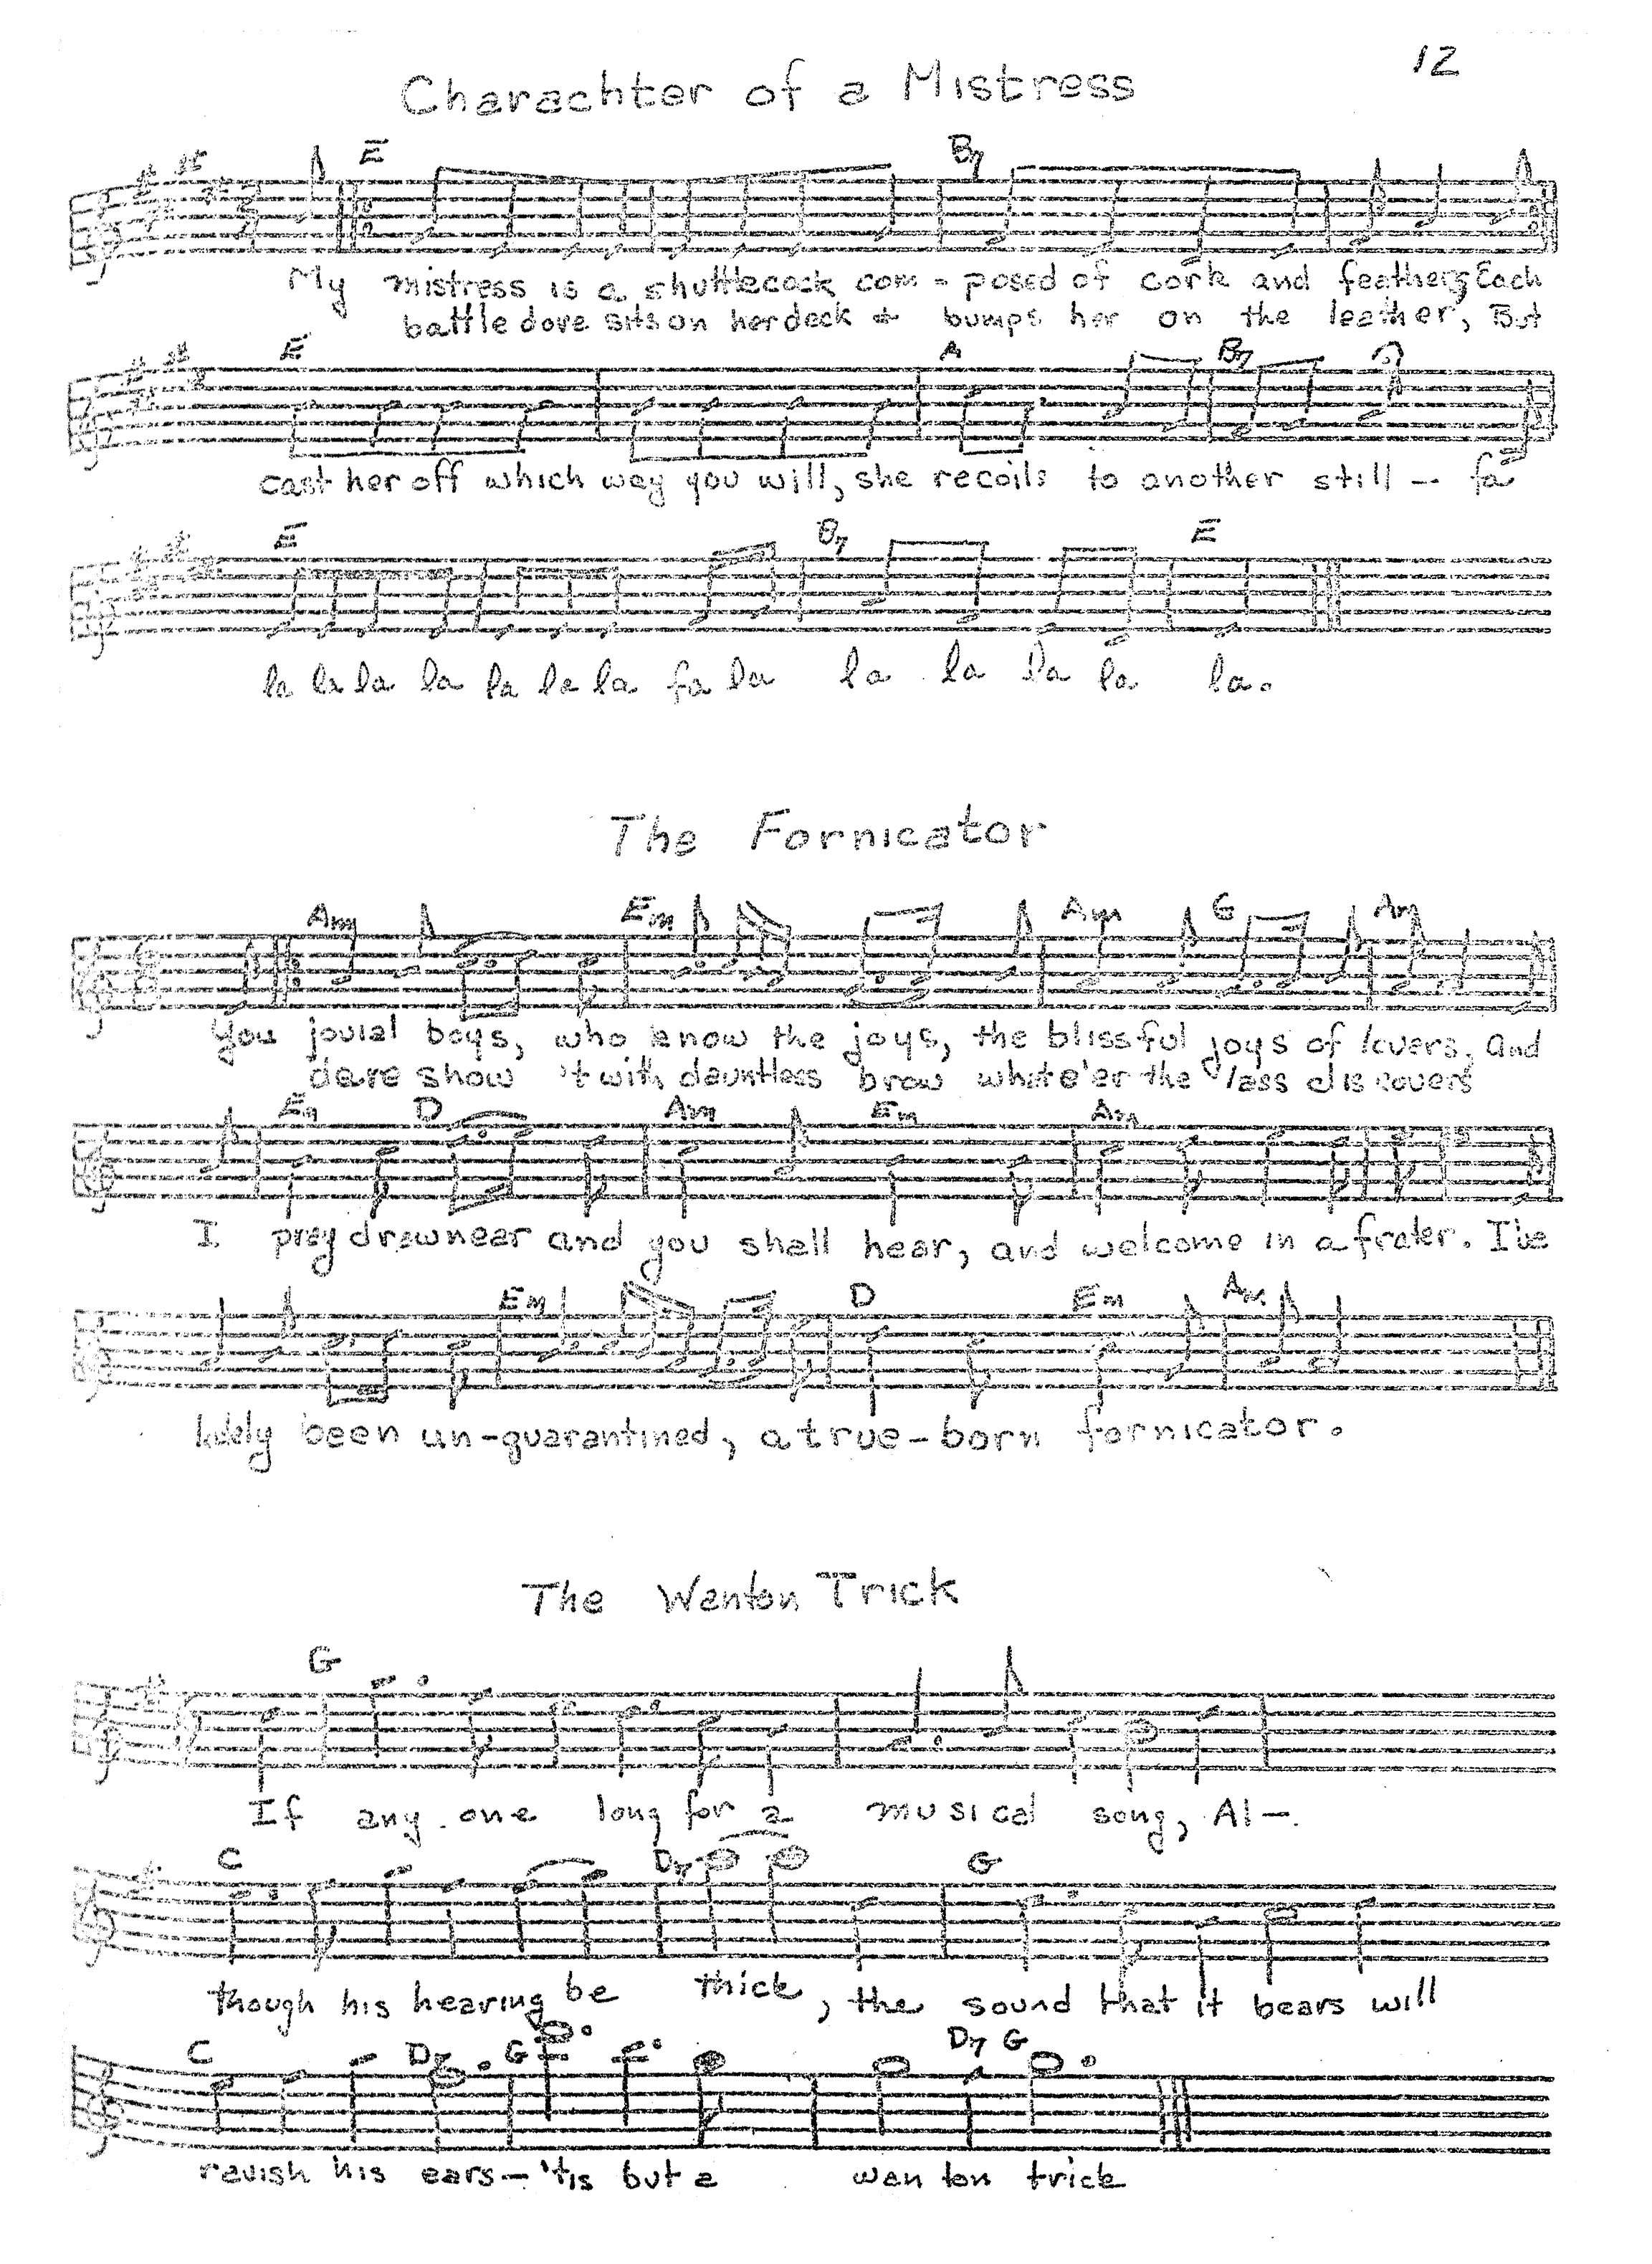 12
Charachter of a Mistress
E B7
My mistress is a shuttlecock com - posed of cork and feathers, Each
battle dove sits on her deck + bumps her on the leather, But
E A B7
cast her off which way you will, she recoils to another still -- fa
E B7 E
la la la la la la la fa la la la la la la.
The Fornicator
Am Em Am G Am
You jovial boys, who know the joys, the blissful joys of lovers, and
dare show 't with dauntless brow whate'er the lass discovers
Em D Am Em Am
I pray draw near and you shall hear, and welcome in a frater. I've
Em D Em Am
lately been un-quarantined, a true-born fornicator.
The Wanton Trick
G
If any one long for a musical song, Al-
C D7 G
though his hearing be thick, the sound that it bears will
C D7 G D7 G
ravish his ears - 'tis but a wan ton trick